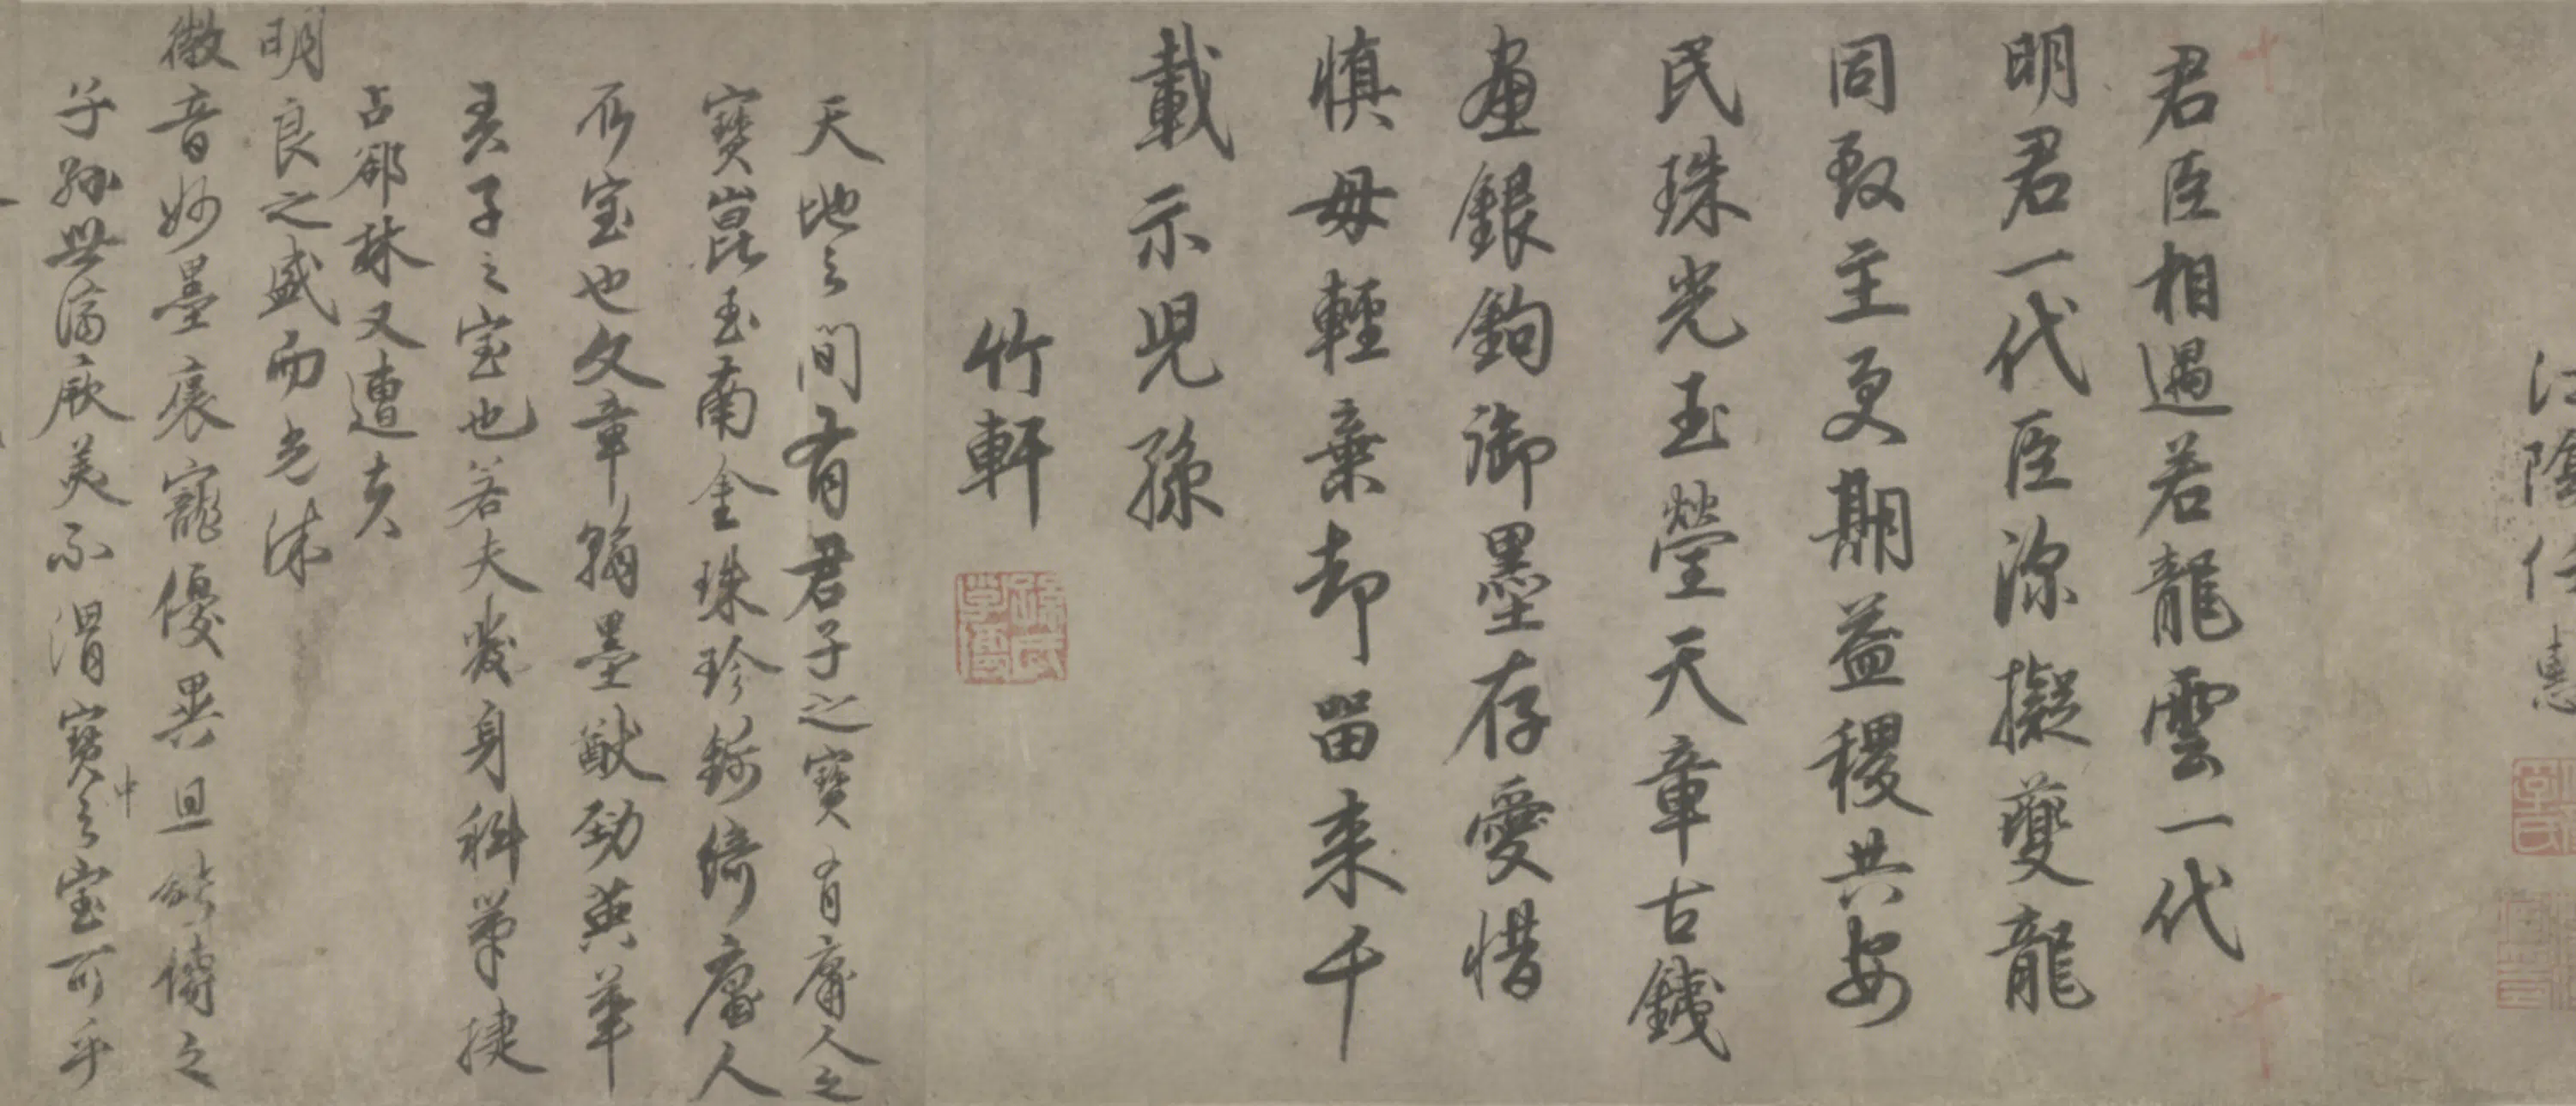 江陰任
君臣相遇若龍雲一代
明君一代臣深擬夔龍
同致主更期益稷共安
民珠光玉瑩天章古鐵
畫銀鉤御墨存愛惜
慎毋輕棄却留来千
載示児孫
竹軒
天地之間有君子之寶有庸人之
寶崑玉南金珠珍錦綺庸人
所宝也文章翰墨猷勁英華
君子之宝也若夫發身科第捷
占郤林又遭夫
明良之盛而光沐
徽音妙墨褒寵優異且能傳之
子孫世濟厥美不謂寶中之宝可乎